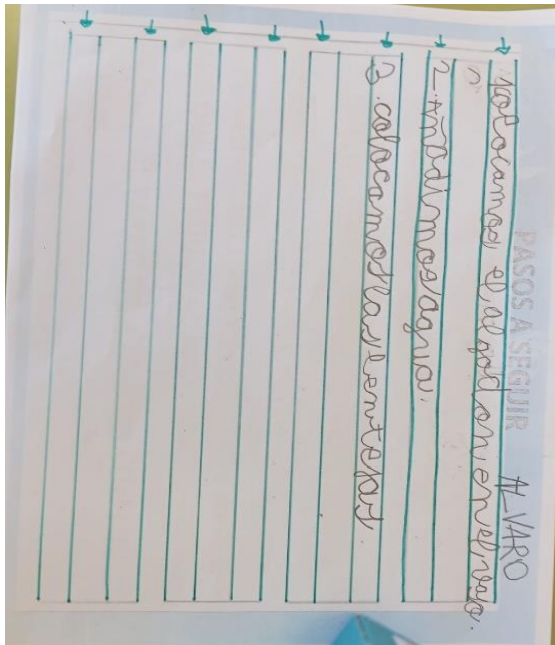 PASOS A SEGUIR ALVARO
1colocamos el algodon en el vaso.
2. Añadimos agua.
3. colocamos las lentejas